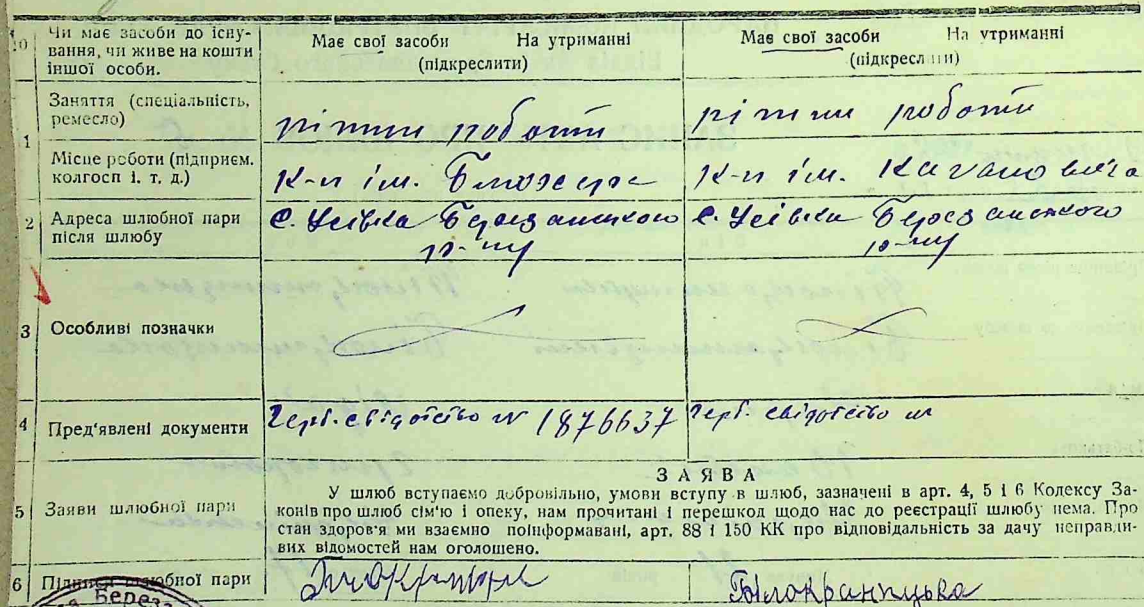 10 Чи має засоби до існу-
вання, чи живе на кошти
іншої особи.
Має свої засоби На утриманні
(підкреслити)
Має свої засоби На утриманні
(підкреслити)
1 Заняття (спеціальність,
ремесло)
різни роботи
різни роботи
Місце роботи (підприєм.
колгосп і. т. д.)
К-п ім. Блюхера
К-п ім. Кагановича
2 Адреса шлюбної пари
після шлюбу
с. Усівка Березанського
р-ну
с. Усівка Березанського
р-ну
3 Особливі позначки
4 Пред'явлені документи
Герб. свідотство № 1876637
Герб. свідотство №
5 Заяви шлюбної пари
ЗАЯВА
У шлюб вступаємо добровільно, умови вступу в шлюб, зазначені в арт. 4, 5 і 6 Кодексу За-
конів про шлюб сім'ю і опеку, нам прочитані і перешкод щодо нас до реєстрації шлюбу нема. Про
стан здоров'я ми взаємно поінформавані, арт. 88 і 150 КК про відповідальність за дачу неправди-
вих відомостей нам оголошено.
6 Підписи шлюбної пари
Береза